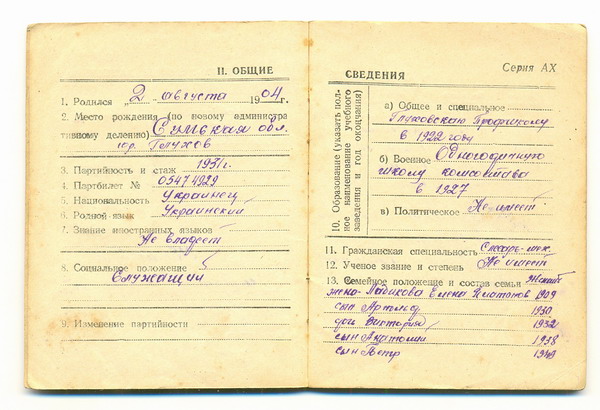 II. ОБЩИЕ
1. Родился „2 августа 1904 г.
2. Место рождения (по новому администра
тивному делению) Сумская обл.
гор. Глухов
3. Партийность и стаж 1931 г.
4. Партбилет № 03474929
5. Национальность Украинец
6. Родной язык Украинский
7. Знание иностранных языков
Не владеет
8. Социальное положение
Служащий
9. Изменение партийности
СВЕДЕНИЯ
Серия АХ
10. Образование (указать пол-
ное наименование учебного
заведения и год окончания)
а) Общее и специальное
Глуховскую Профшколу
в 1922 году
б) Военное Одногодичную
школу комсостава
в 1927
в) Политическое Не имеет
11. Гражданская специальность Слесарь-мех.
12. Ученое звание и степень Не имеет
13. Семейное положение и состав семьи Женат
жена- Елена 1909
сын 1930
доч Виктория 1932
сын Анатолий 1938
сын Петр 1949